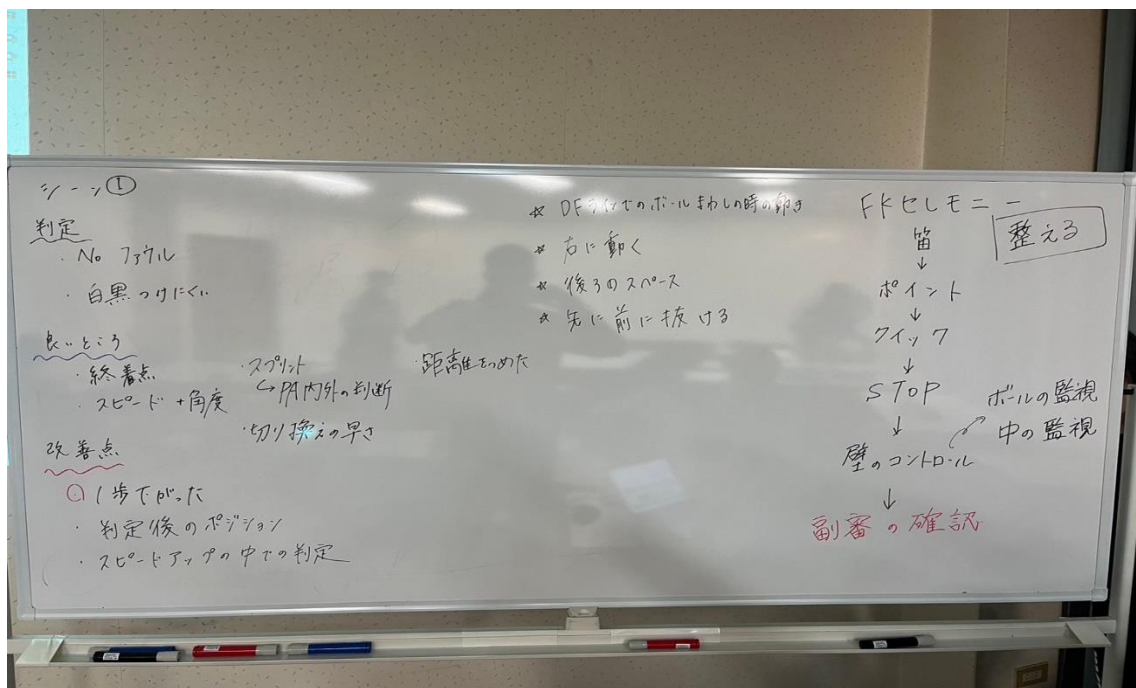 シーン①
判定
・No ファウル
・白黒つけにくい
良いところ
・終着点
・スピード+角度
・スプリント
↳PA内外の判断
・切り換えの早さ
・距離をつめた
改善点
○1歩下がった
・判定後のポジション
・スピードアップの中での判定
☆ DFラインでのボールまわしの時の動き
☆ 右に動く
☆ 後ろのスペース
☆ 先に前に抜ける
FKセレモニー
整える
笛
↓
ポイント
↓
クイック
↓
STOP
↓
壁のコントロール
ボールの監視
中の監視
↓
副審の確認